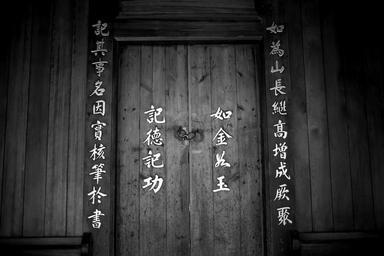 如為山長繼高增成厥聚
如金如玉
記德記功
記其事名因實核筆於書